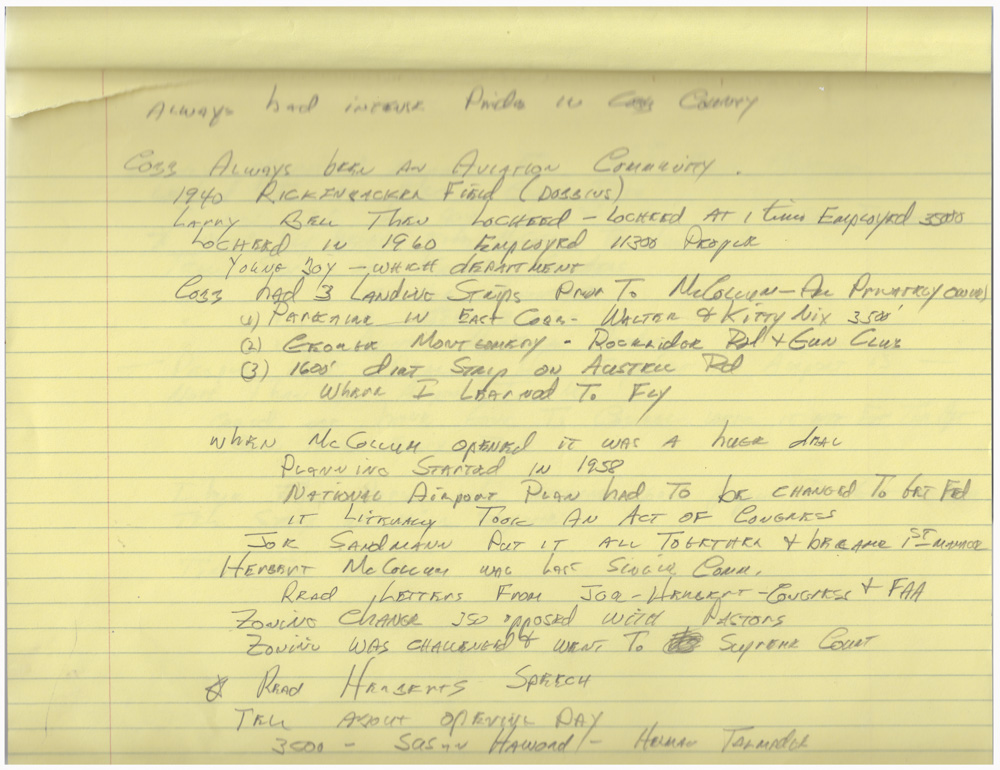 Always had intense Pride in Cobb County
Cobb Always been an Aviation Community.
1940 Rickenbacker Field (Dobbins)
Larry Bell Then Locheed - Locheed at 1 time Employed 35000
Locheed in 1960 Employed 11300 People
Young Boy - which department
Cobb had 3 Landing Strips Prior To McCollum - All Privately owned
(1) Parkaire in East Cobb - Walter & Kitty Nix 3500'
(2) George Montgomery - Rockridge Rd & Gun Club
(3) 1600' dirt Strip on Austell Rd
Where I Learned To Fly
When McCollum opened it was a huge deal
Planning Started in 1958
National Airport Plan had To be changed To get Fed
it Literally Took An Act of Congress
Joe Sandmann Put it all Together & became 1st manager
Herbert McCollum was last Single Comm.
Read Letters From Joe - Herbert - Congress & FAA
Zoning Change 350 opposed with Pastors
Zoning was challenged & went To Supreme Court
Read Herberts Speech
Tell About opening Day
3500 - Susan Hayward - Herman Talmadge